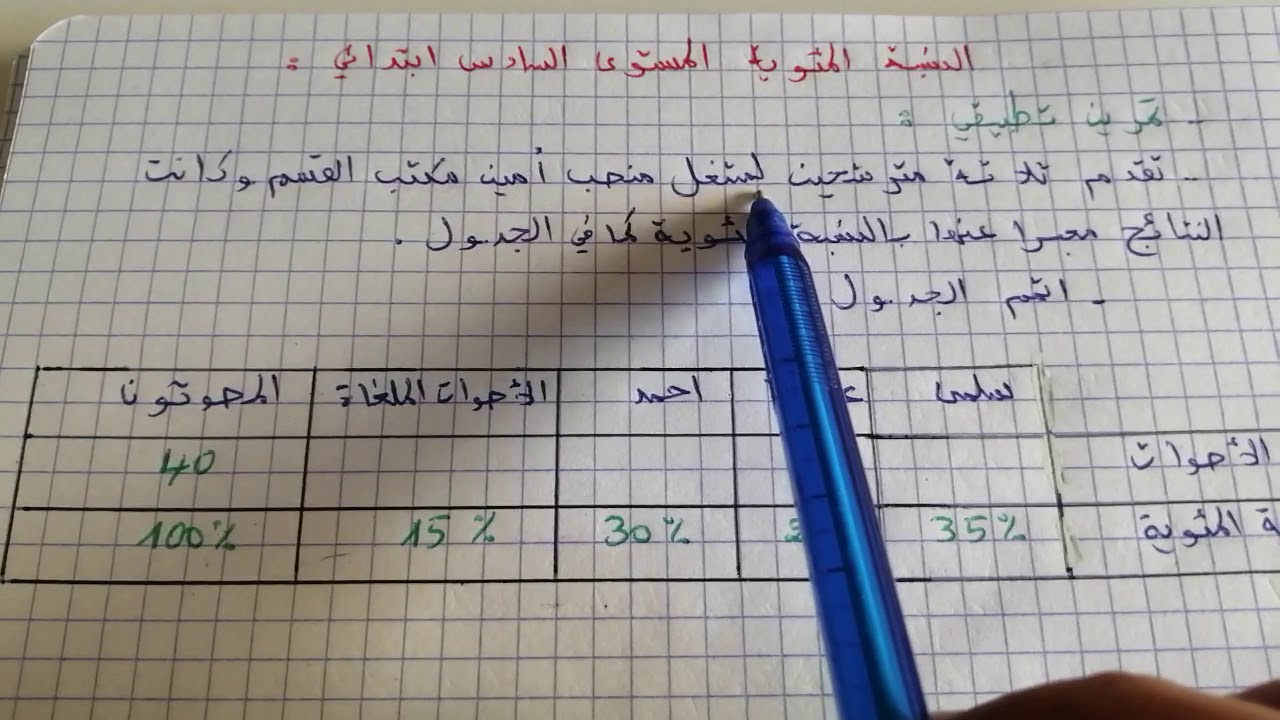 النسبة المئوية المستوى السادس ابتدائي :
- تمرين تطبيقي :
- تقدم ثلاثة مترشحين لشغل منصب أمين مكتب القسم وكانت
النتائج معبرا عنها بالنسبة المئوية كما في الجدول .
- اتمم الجدول
سلمى احمد الأصوات الملغاة المصوتون
الأصوات 40
المئوية 35% 30% 15% 100%